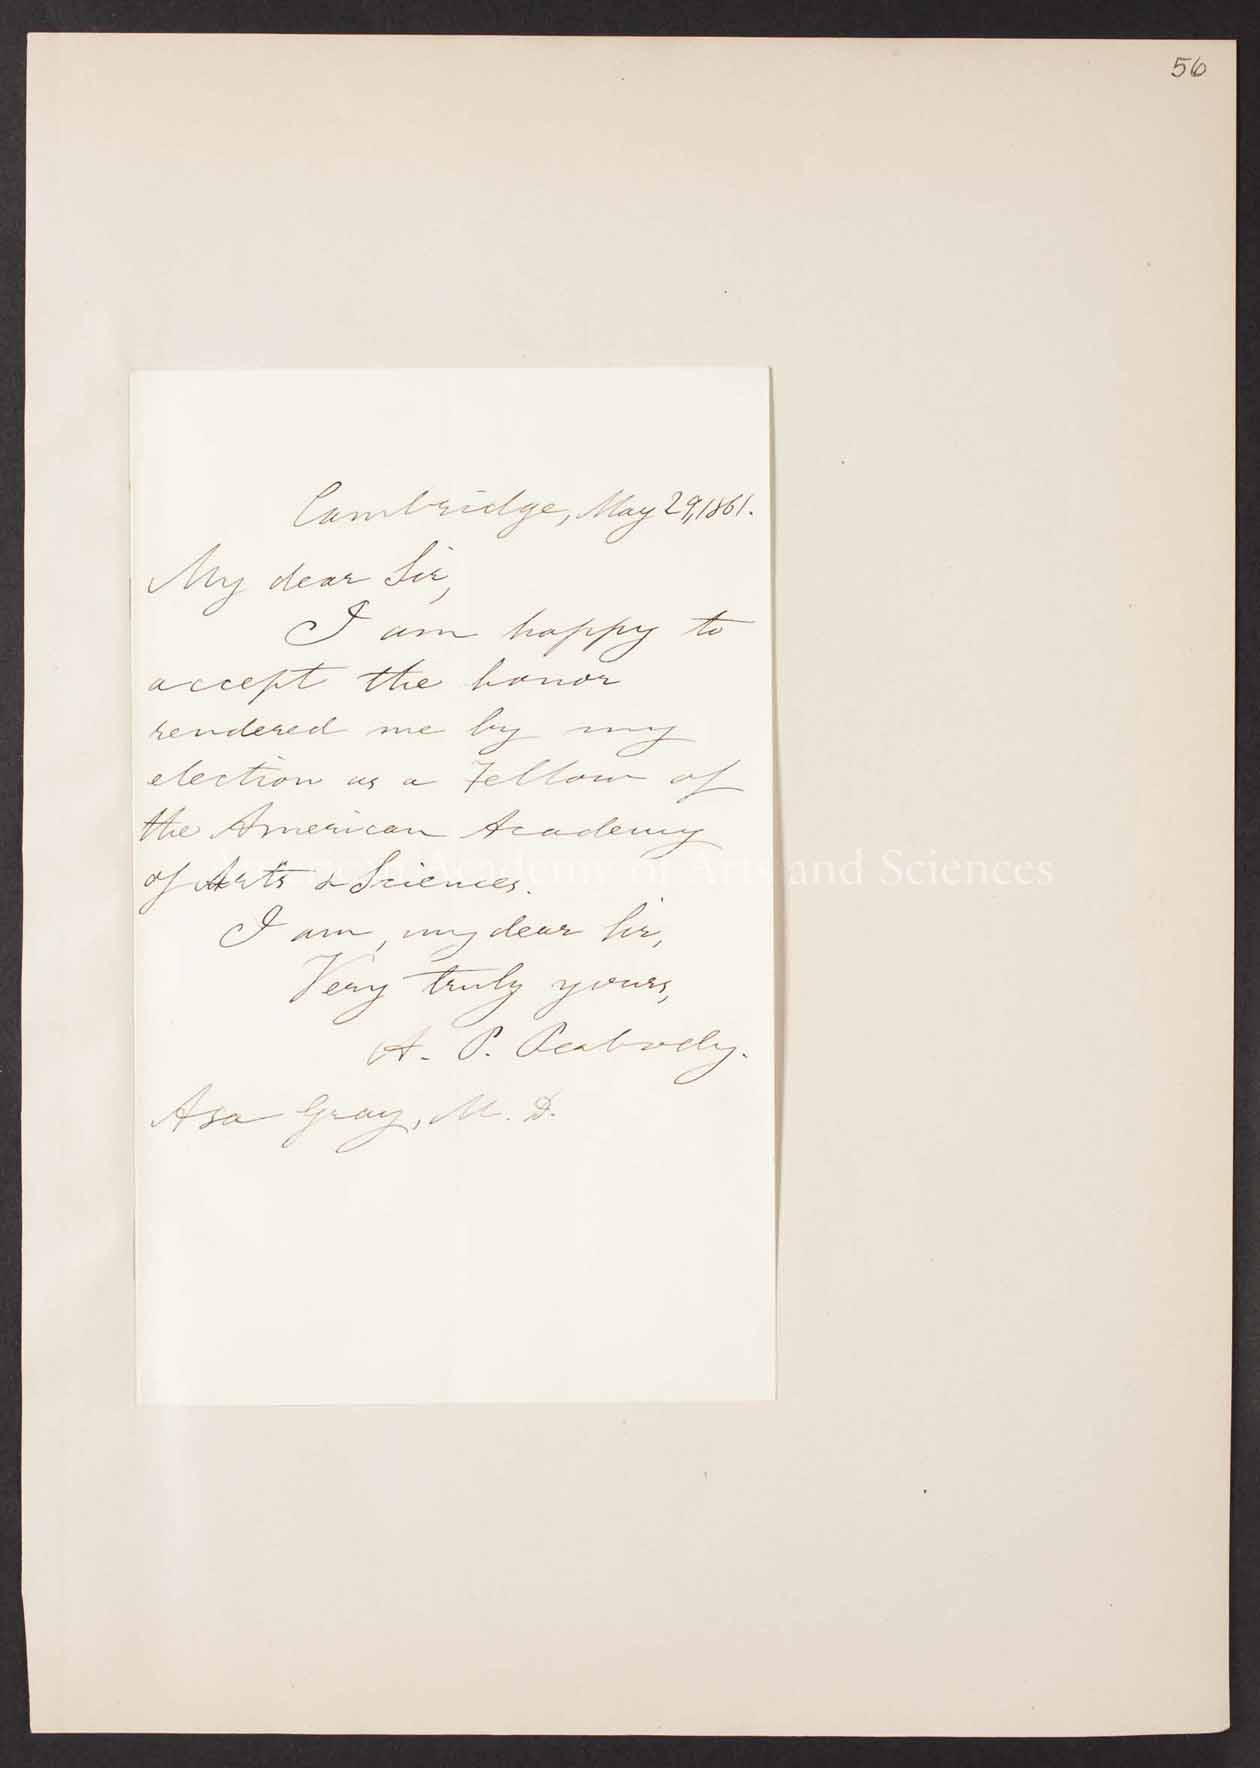 56
Cambridge, May 29, 1861.
My dear Sir,
I am happy to
accept the honor
rendered me by my
election as a Fellow of
the American Academy
of Arts & Sciences.
American Academy of Arts and Sciences
I am, my dear Sir,
Very truly yours,
A. P. Peabody.
Asa Gray, M. D.